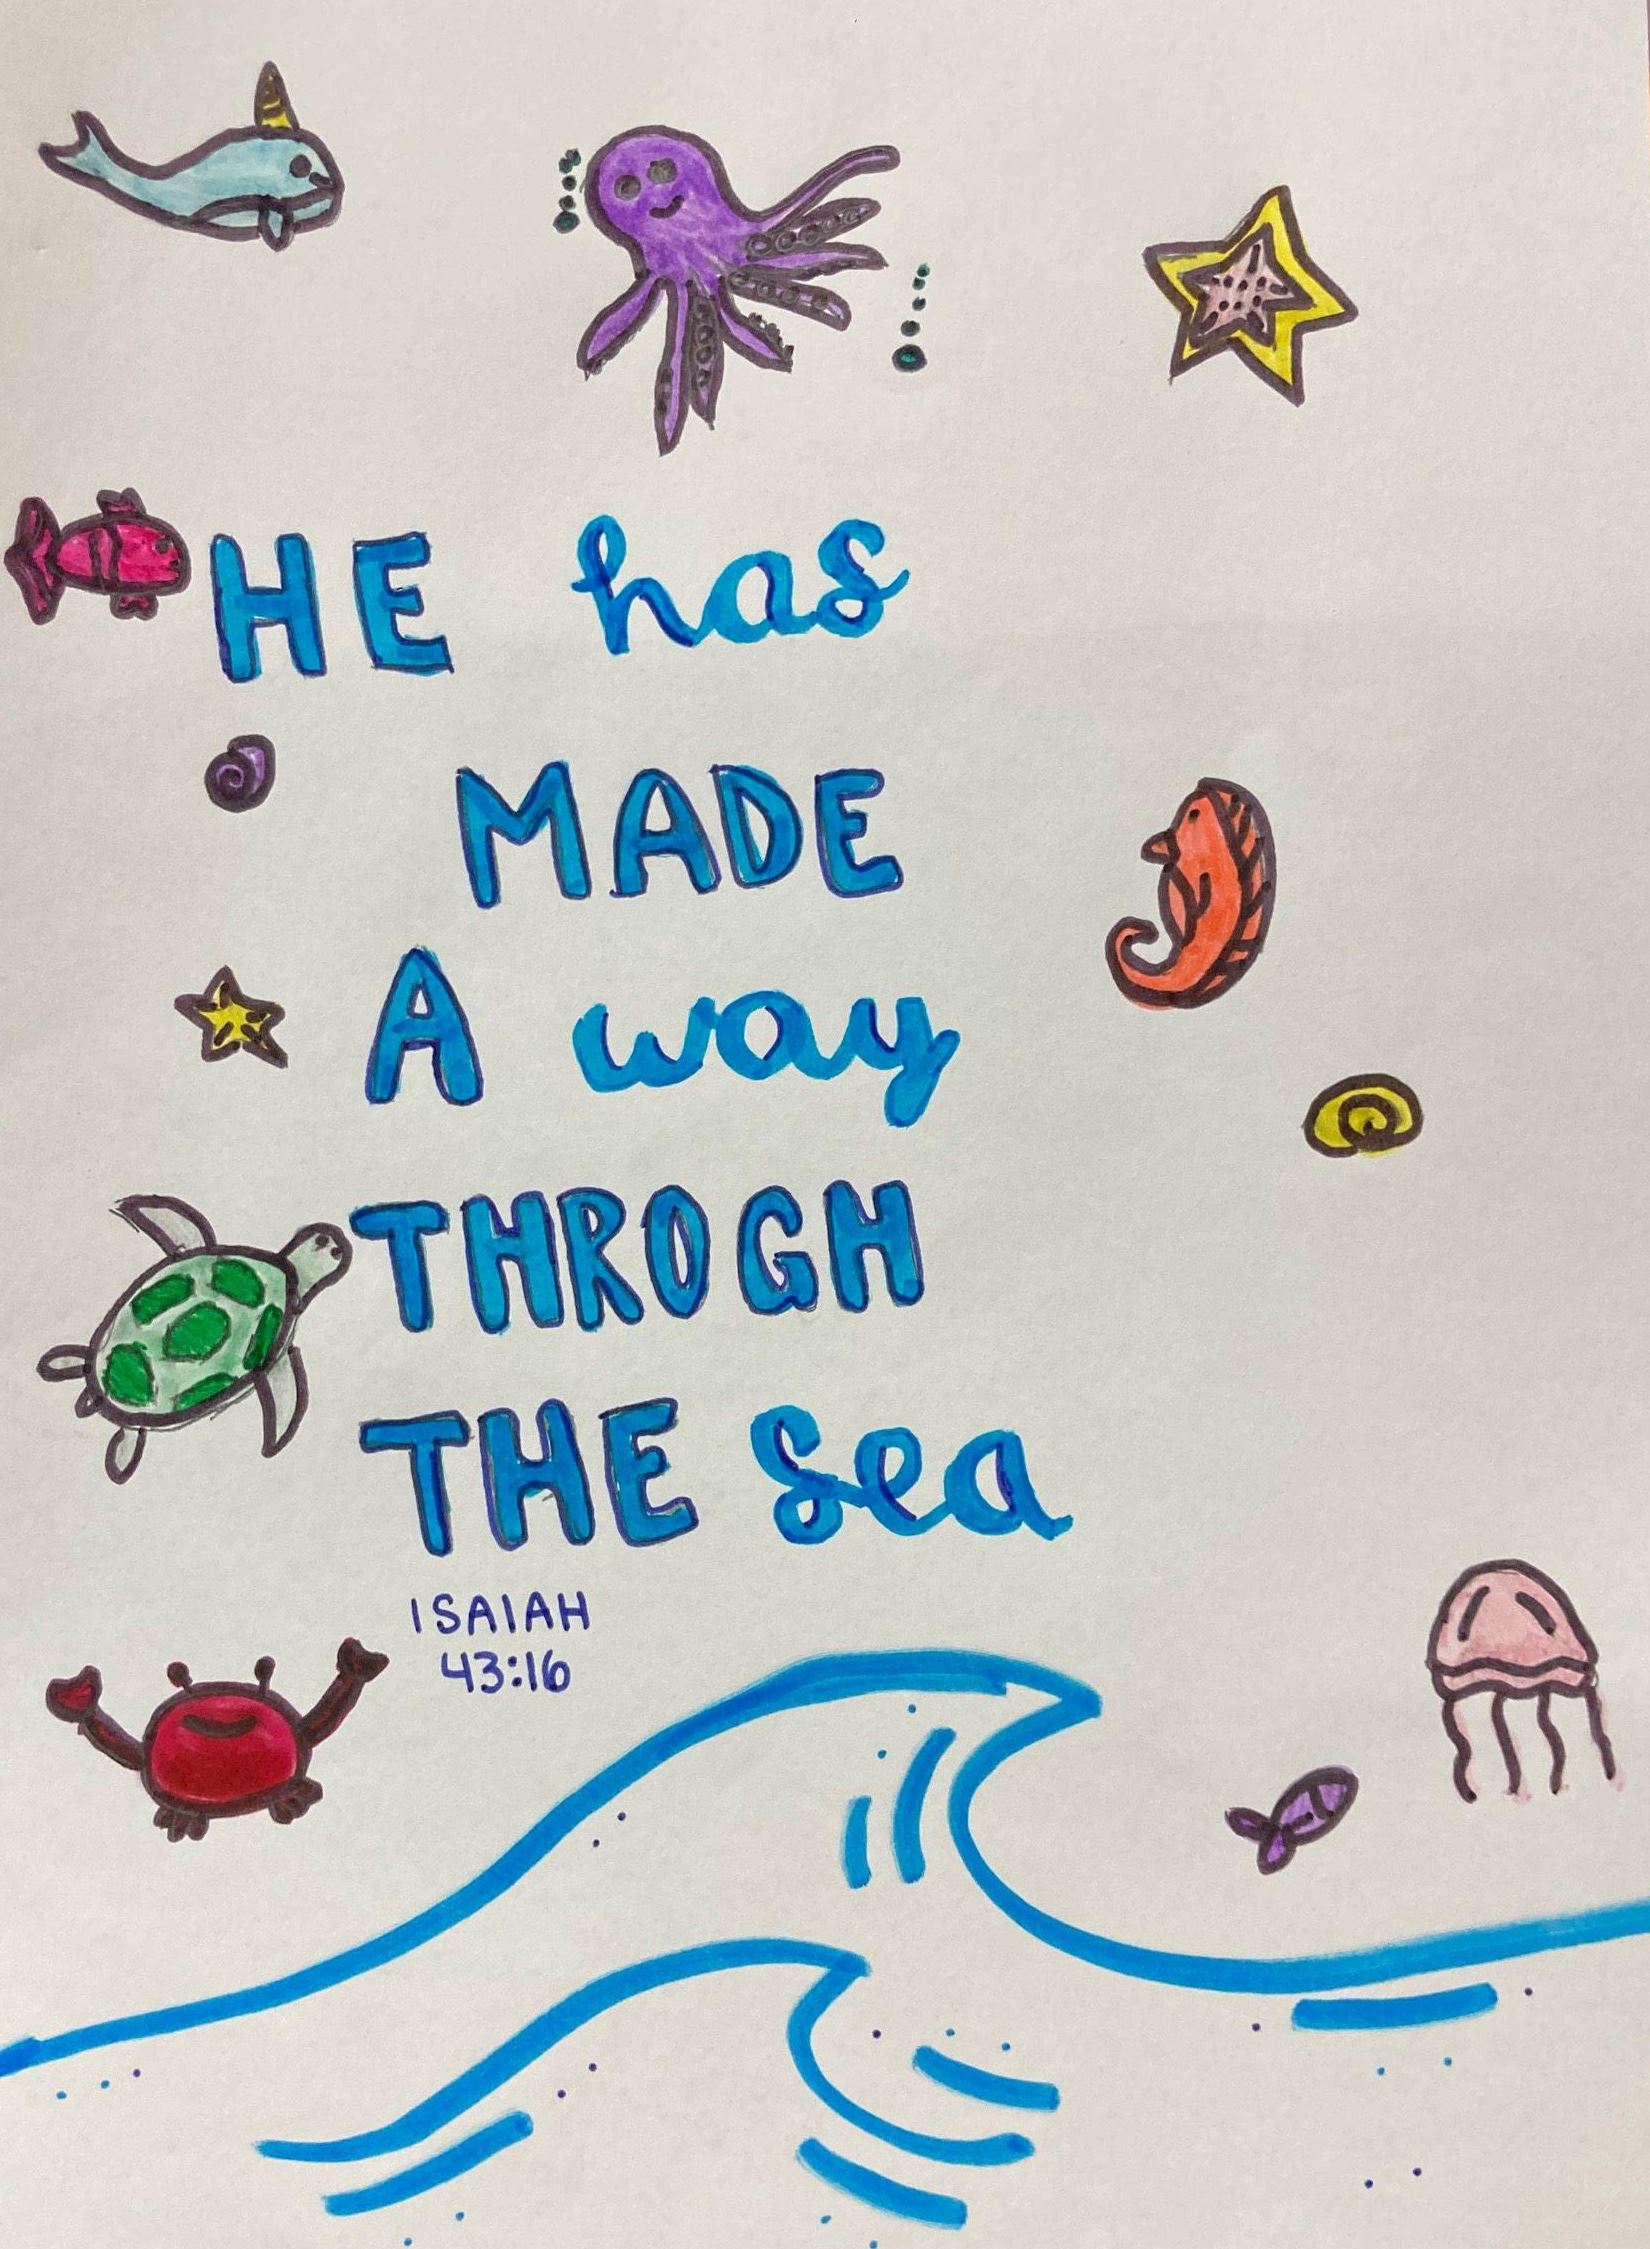 HE has
MADE
A way
THROGH
THE sea
ISAIAH
43:16